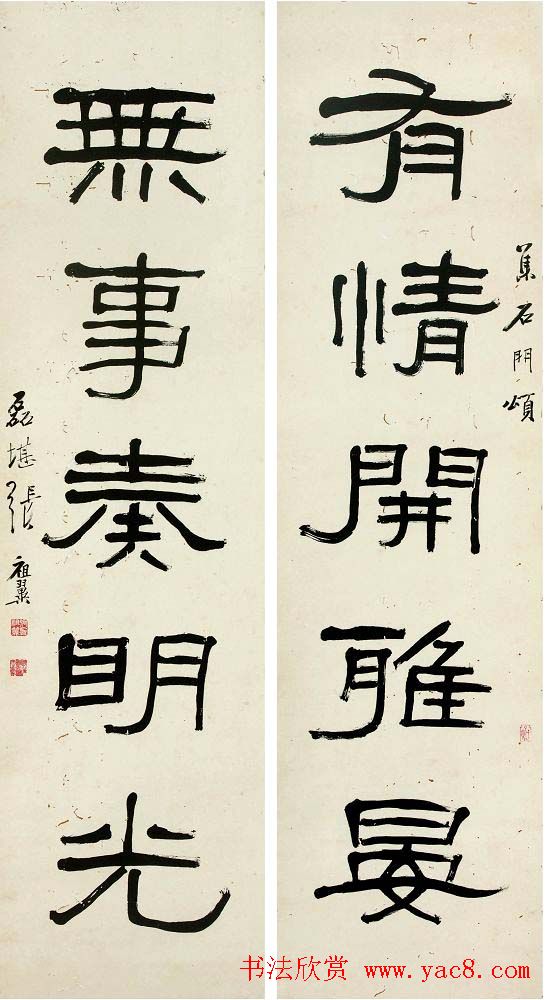 集石門頌
有情開雅晏
無事奏明光
磊堪張祖翼
书法欣赏 www.yac8.com